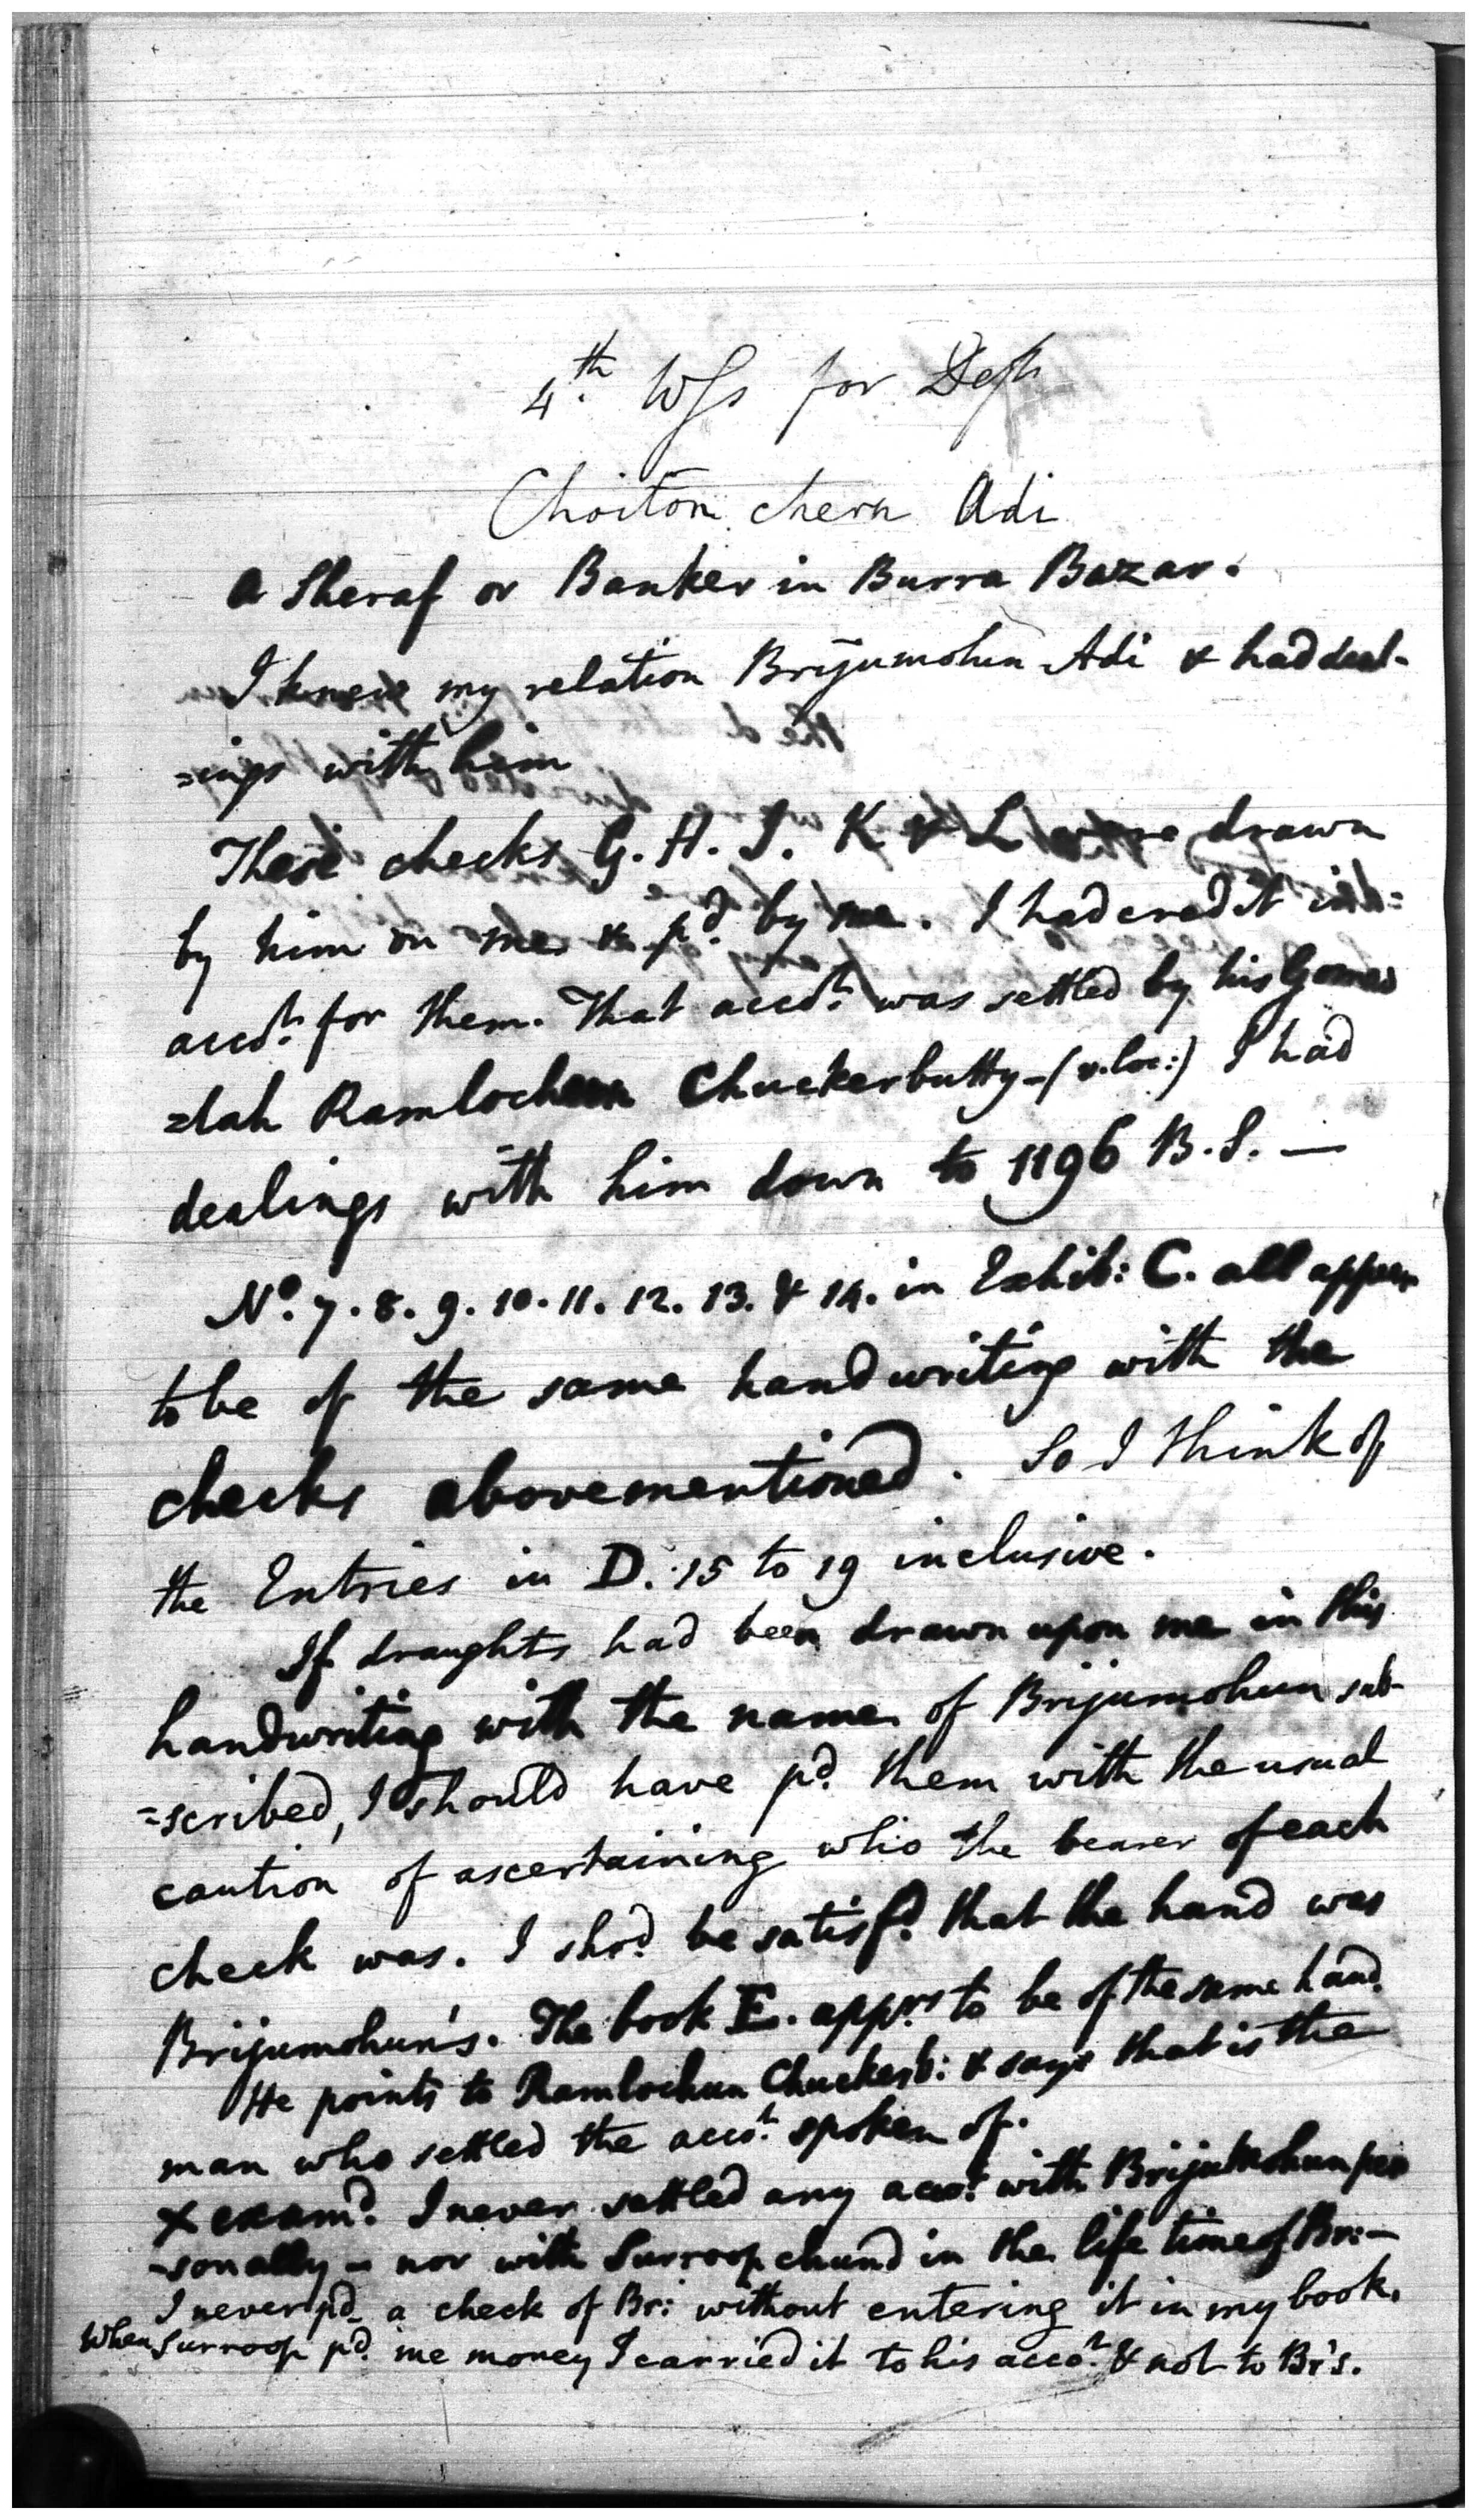 4.th Wss for Deft
Choiton chern Adi
A Sheraf or Banker in Burra Bazar.
I knew my relation Brijumohun Adi & had deal-
=ings with him
These checks G. H. I. K & L were drawn
by him on me & pd. by me. I had credit in
acct. for them. That acct. was settled by his Gomas
=tah Ramlochun Chuckerbutty - (v. loc:) I had
dealings with him down to 1196 B.S. —
No. 7. 8. 9. 10. 11. 12. 13. & 14. in Exhib: C. all appear
to be of the same handwriting with the
checks abovementioned. So I think of
the Entries in D. 15 to 19 inclusive.
If draughts had been drawn upon me in this
handwriting with the name of Brijumohun sub-
=scribed, I should have pd. them with the usual
caution of ascertaining who the bearer of each
check was. I shod. be satisfd. that the hand was
Brijumohun's. The book E. apprs. to be of the same hand.
He points to Ramlochun Chuckerb: & says that is the
man who settled the acct. spoken of.
X examd. I never settled any acct. with Brijumohun per
-sonally - nor with Surroopchund in the life time of Br: —
I never pd. a check of Br: without entering it in my book.
When Surroop pd. me money I carried it to his acct. & not to Br's.